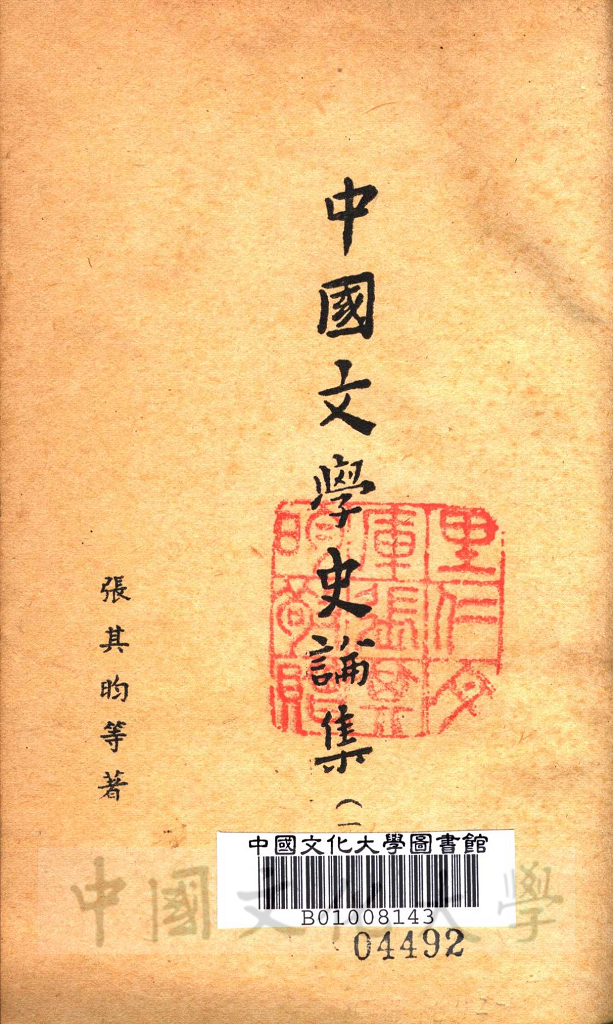 中國文學史論集(一
張其昀等著
中國文化大學圖書館
B01008143
04492
中國文化大學